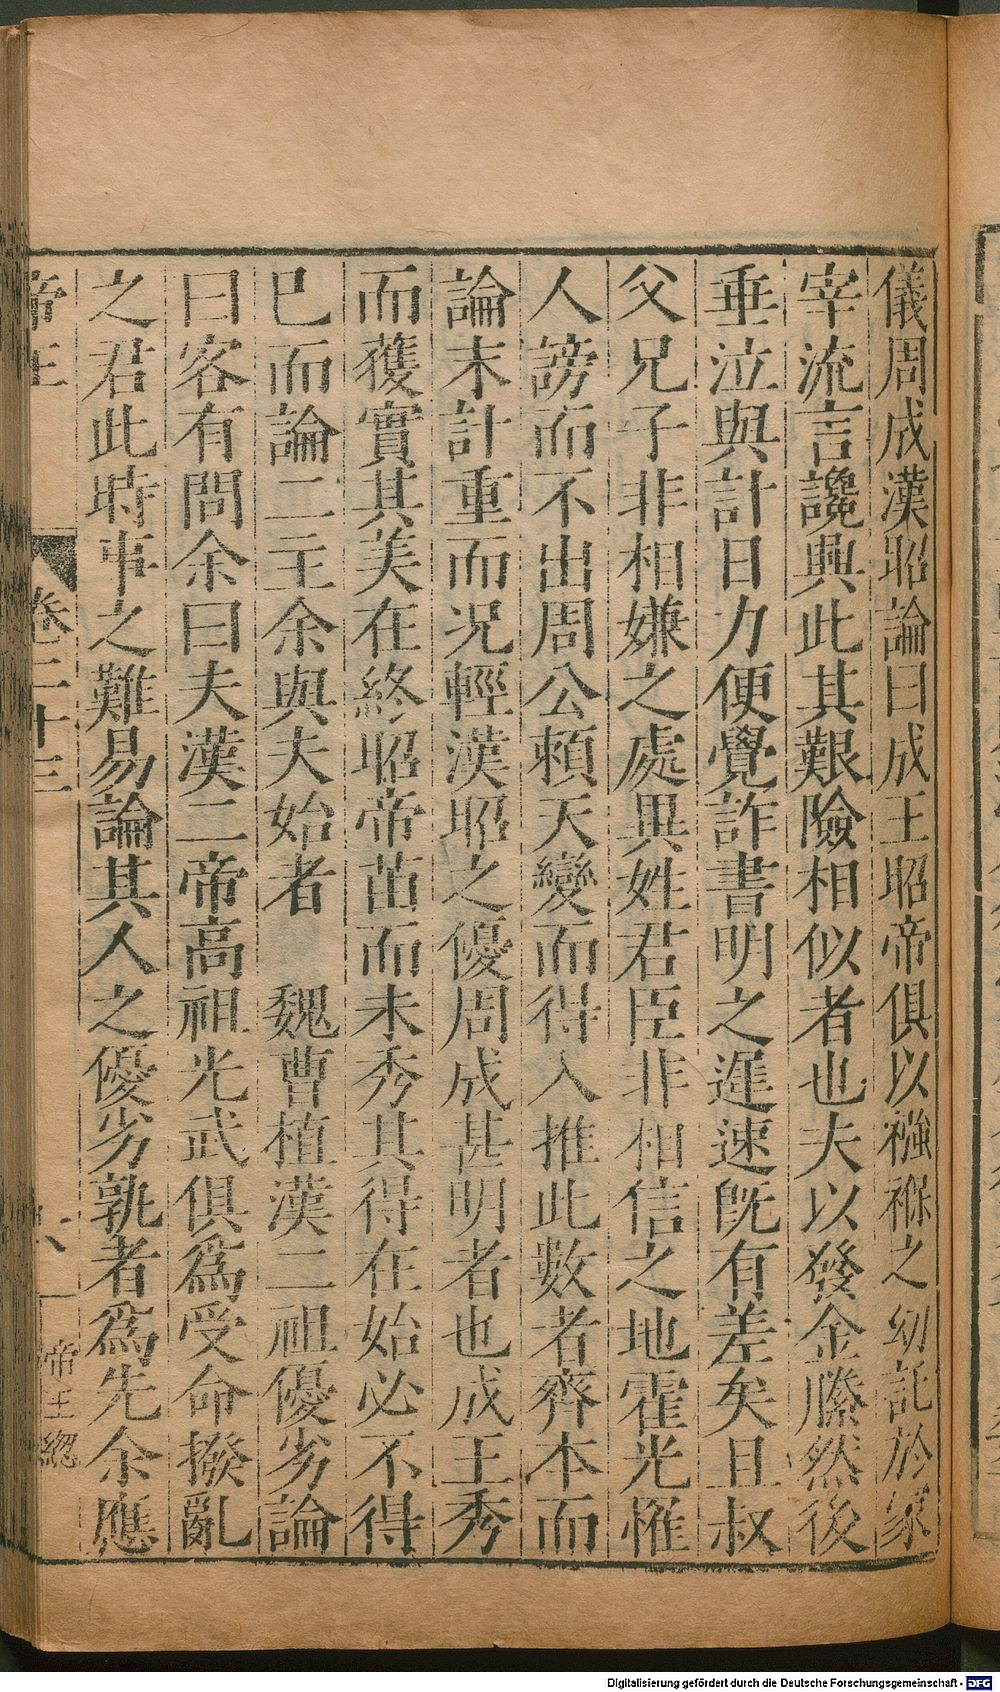 儀周成漢昭論曰成王昭帝俱以襁褓之幼託於冢
宰流言讒興此其艱險相似者也夫以發金縢然後
垂泣與計日力便覺詐書明之遲速既有差矣且叔
父兄子非相嫌之處異姓君臣非相信之地霍光惟
人謗而不出周公賴天變而得入推此數者齊本而
論末計重而況輕漢昭之優周成甚明者也成王秀
而獲實其美在終昭帝苗而未秀其得在始必不得
已而論二主余與夫始者 魏曹植漢二祖優劣論
曰客有問余曰夫漢二帝高祖光武俱為受命撥亂
之君此時事之難易論其人之優劣孰者為先余應
帝王 卷二十三 帝王總
Digitalisierung gefördert durch die Deutsche Forschungsgemeinschaft - DFG